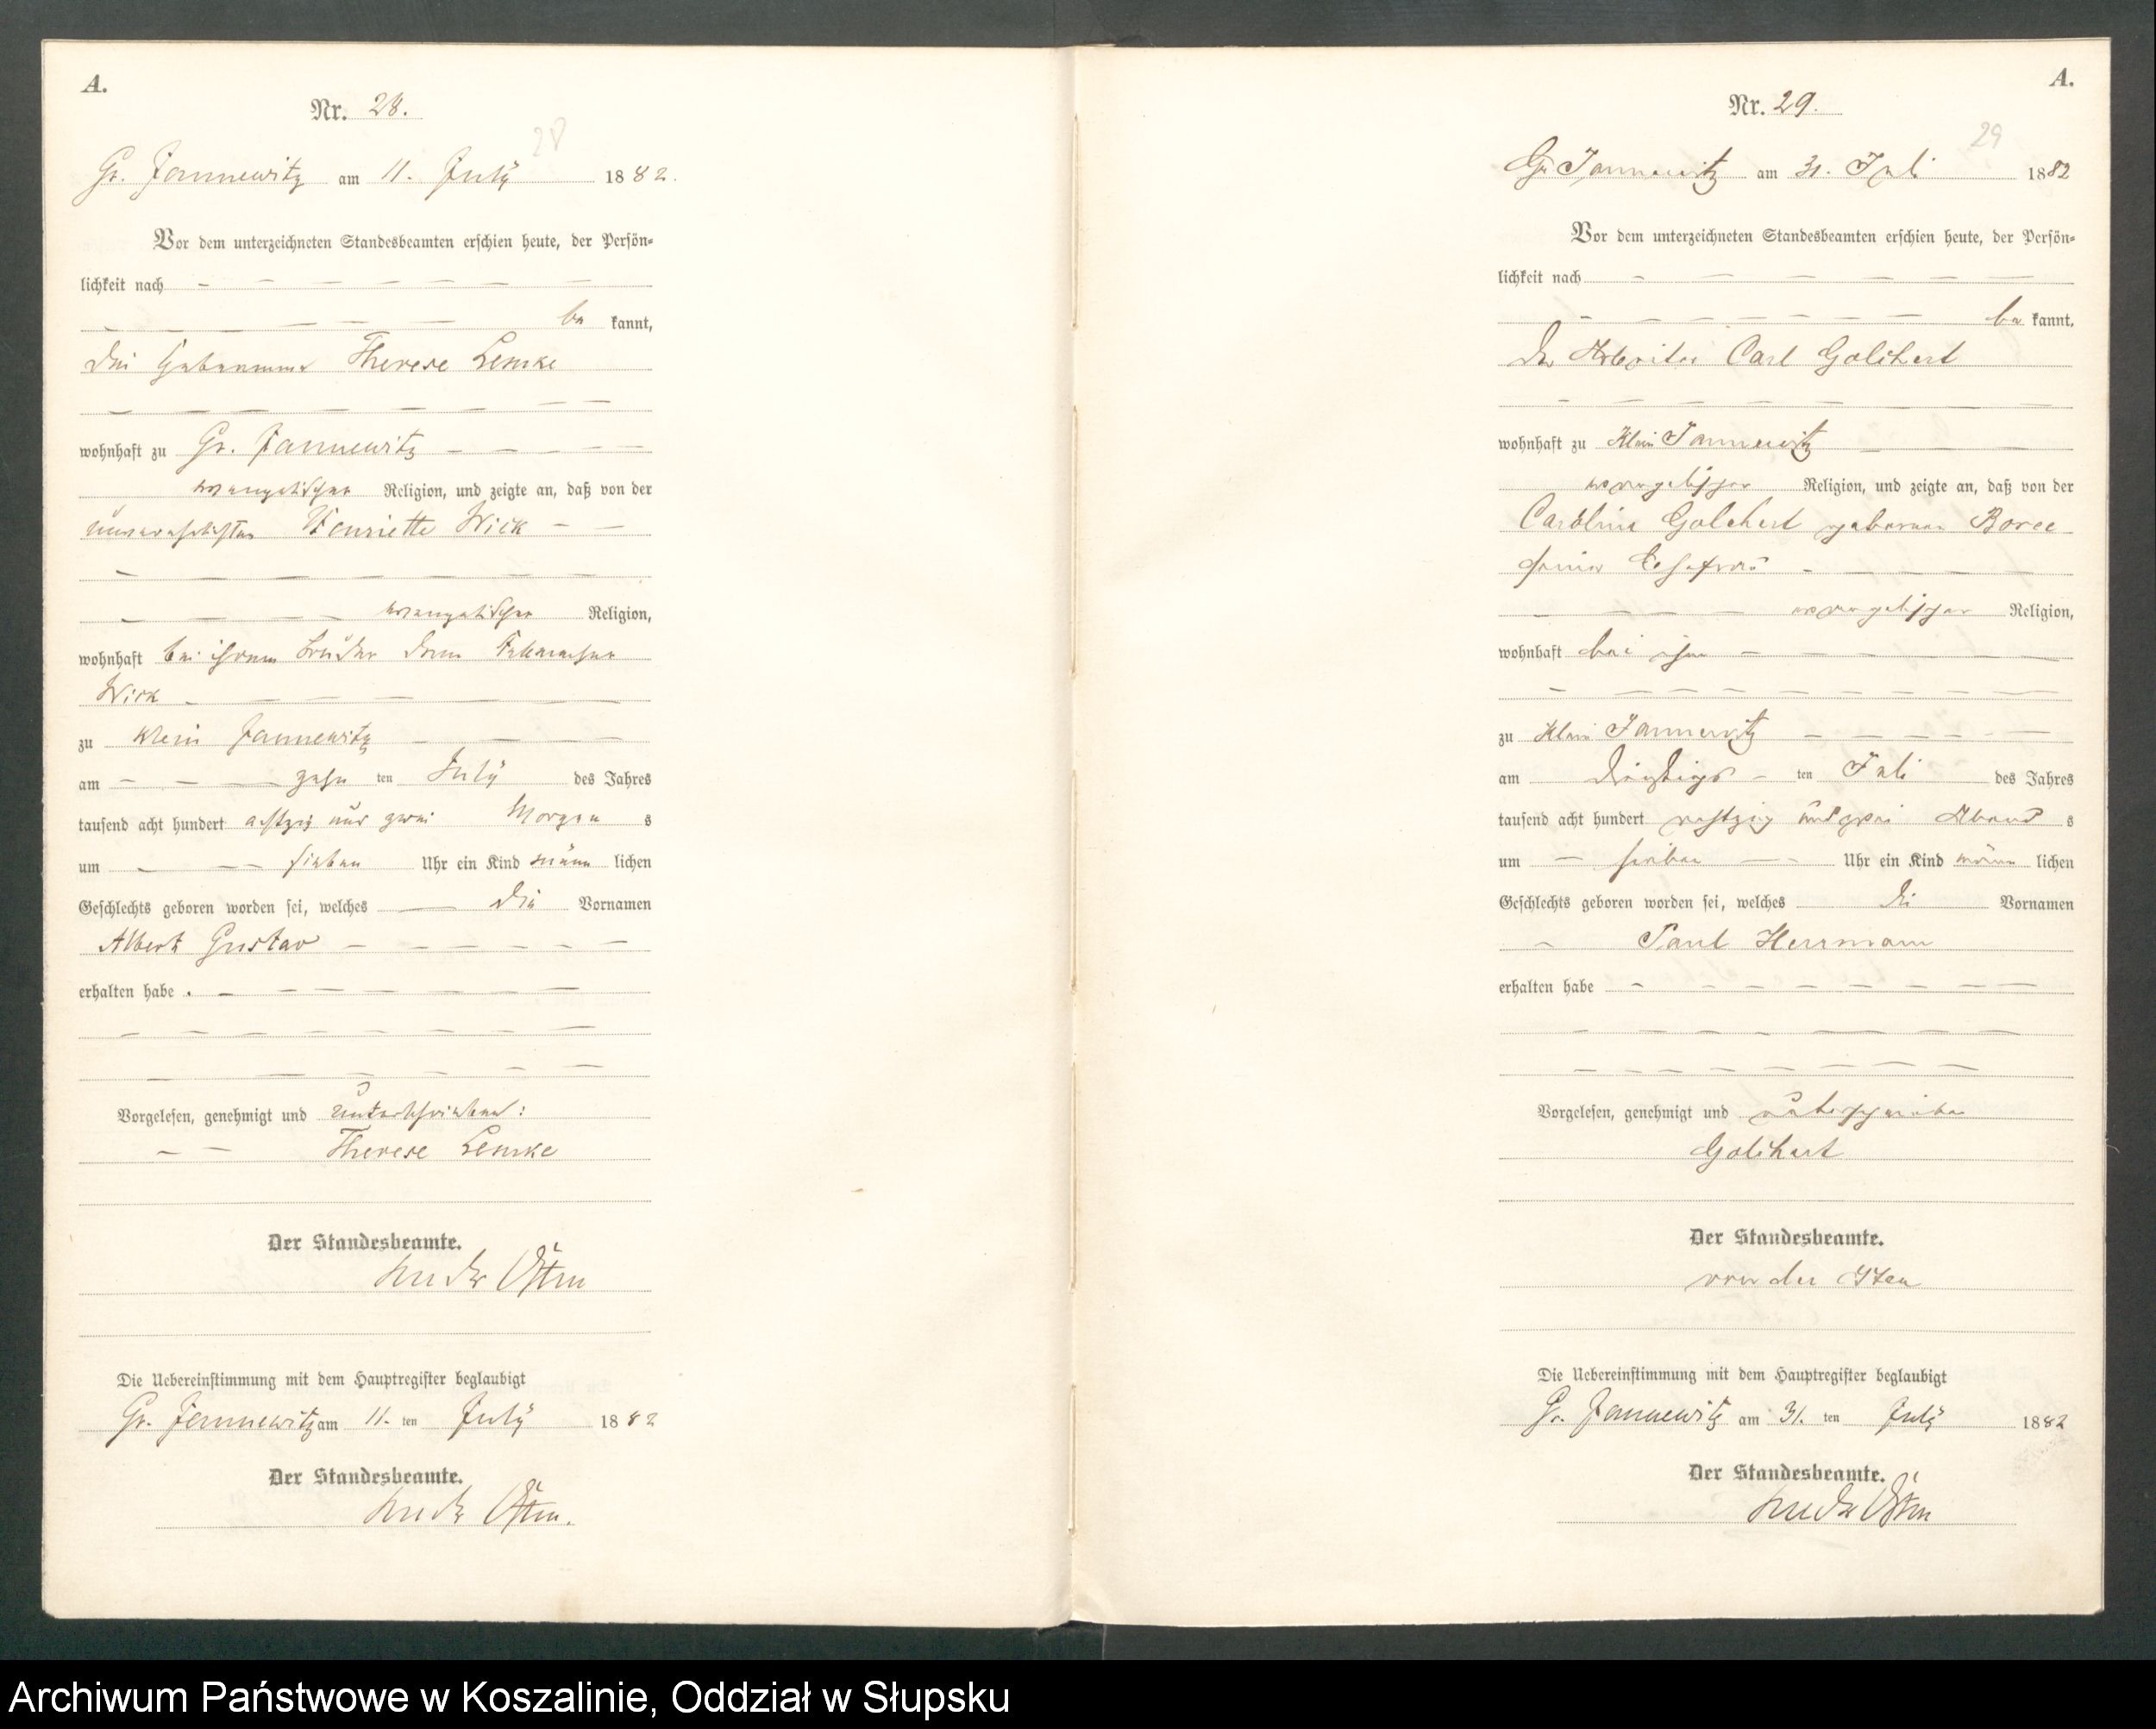 A.
Nr. 28.
28
Gr. Jannewitz am 11. July 1882.
Vor dem unterzeichneten Standesbeamten erschien heute, der Persön-
lichkeit nach
be kannt,
die Hebamme Therese Lemke
wohnhaft zu Gr. Jannewitz
evangelischer Religion, und zeigte an, daß von der
unverehelichten Henriette Wick
evangelischer Religion,
wohnhaft bei ihrem Bruder dem
Wick
zu Klein Jannewitz
am zehn ten July des Jahres
tausend acht hundert achtzig und zwei Morgen s
um sieben Uhr ein Kind männ lichen
Geschlechts geboren worden sei, welches die Vornamen
Albert Gustav
erhalten habe.
Vorgelesen, genehmigt und unterschrieben:
Therese Lemke
Der Standesbeamte.
von der Osten
Die Uebereinstimmung mit dem Hauptregister beglaubigt
Gr. Jannewitz am 11. ten July 1882
Der Standesbeamte.
von der Osten.
A.
Nr. 29.
29
Gr. Jannewitz am 31. Juli 1882
Vor dem unterzeichneten Standesbeamten erschien heute, der Persön-
lichkeit nach
be kannt,
der Arbeiter Carl Golchert
wohnhaft zu Klein Jannewitz
evangelischer Religion, und zeigte an, daß von der
Caroline Golchert geborene Boree
seiner Ehefrau
evangelischer Religion,
wohnhaft bei ihm
zu Klein Jannewitz
am dreißigs ten Juli des Jahres
tausend acht hundert achtzig und zwei Abend s
um sieben Uhr ein Kind männ lichen
Geschlechts geboren worden sei, welches die Vornamen
Paul Herrmann
erhalten habe
Vorgelesen, genehmigt und unterschrieben
Golchert
Der Standesbeamte.
von der Osten
Die Uebereinstimmung mit dem Hauptregister beglaubigt
Gr. Jannewitz am 31. ten July 1882
Der Standesbeamte.
von der Osten
Archiwum Państwowe w Koszalinie, Oddział w Słupsku